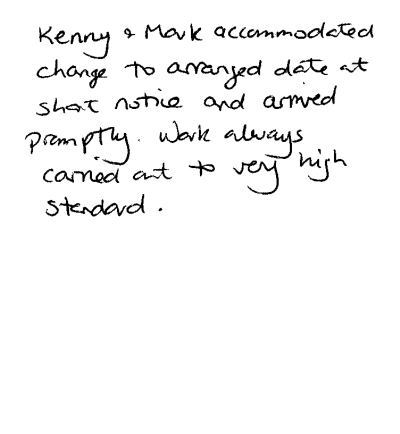 Kenny & Mark accommodated
change to arranged date at
short notice and arrived
promptly. Work always
carried out to very high
standard.